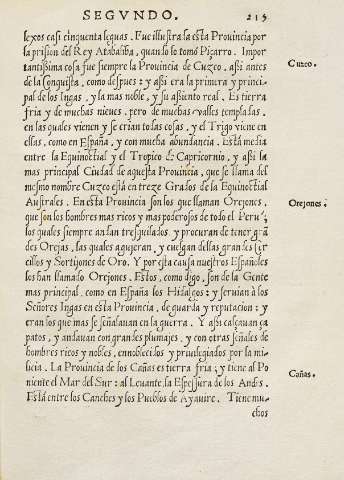 SEGVNDO. 215
lexos casi cinquenta leguas. Fue illustrada esta Prouincia por
la prision del Rey Atabaliba, quando le tomó Piçarro. Impor
tantissima cosa fue siempre la Prouincia de Cuzco, assi antes
de la Conquista, como despues: y assi era la primera y princi-
pal de los Ingas, y la mas noble, y su assiento real. Es tierra
fria y de muchas nieues, pero de muchas valles templadas,
en las quales vienen y se crian todas cosas, y el Trigo viene en
ellas, como en España, y con mucha abundancia. Está media
entre la Equinoctial y el Tropico de Capricornio, y assi la
mas principal Ciudad de aquesta Prouincia, que se llama del
mesmo nombre Cuzco está en treze Grados de la Equinoctial
Australes. En esta Prouincia son los que llaman Orejones,
que son los hombres mas ricos y mas poderosos de todo el Peru;
los quales siempre andan tresquilados, y procuran de tener grã
des Orejas, las quales agujeran, y cuelgan dellas grandes çar
cillos y Sortijones de Oro. Y por esta causa nuestros Españoles
los han llamado Orejones. Estos, como digo, son de la Gente
mas principal, como en España los Hidalgos: y seruian à los
Señores Ingas en esta Prouincia, de guarda y reputacion: y
eran los que mas se señalauan en la guerra. Y assi calçauan ça
patos, y andauan con grandes plumajes, y con otras señales de
hombres ricos y nobles, ennoblecidos y priuilegiados por la mi-
licia. La Prouincia de los Cañas es tierra fria; y tiene al Po
niente el Mar del Sur: al Leuante, la Espessura de los Andes.
Está entre los Canches y los Pueblos de Ayauire. Tiene mu-
chos
Cuzco.
Orejones.
Cañas.